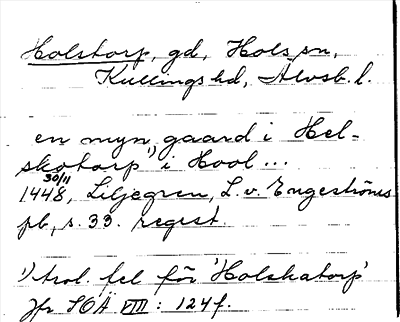 Holstorp, gd, Hols sn,
Kullings hd, Älvsb. l.
en myn gaard i Hel-
skotorp ¹) i Hool ...
30/11
1448, Liljegren, L. v. Engeströms
pb, s. 33. regest.
¹) trol. fel för 'Holskatorp'
Jfr SOÄ VIII : 124f.